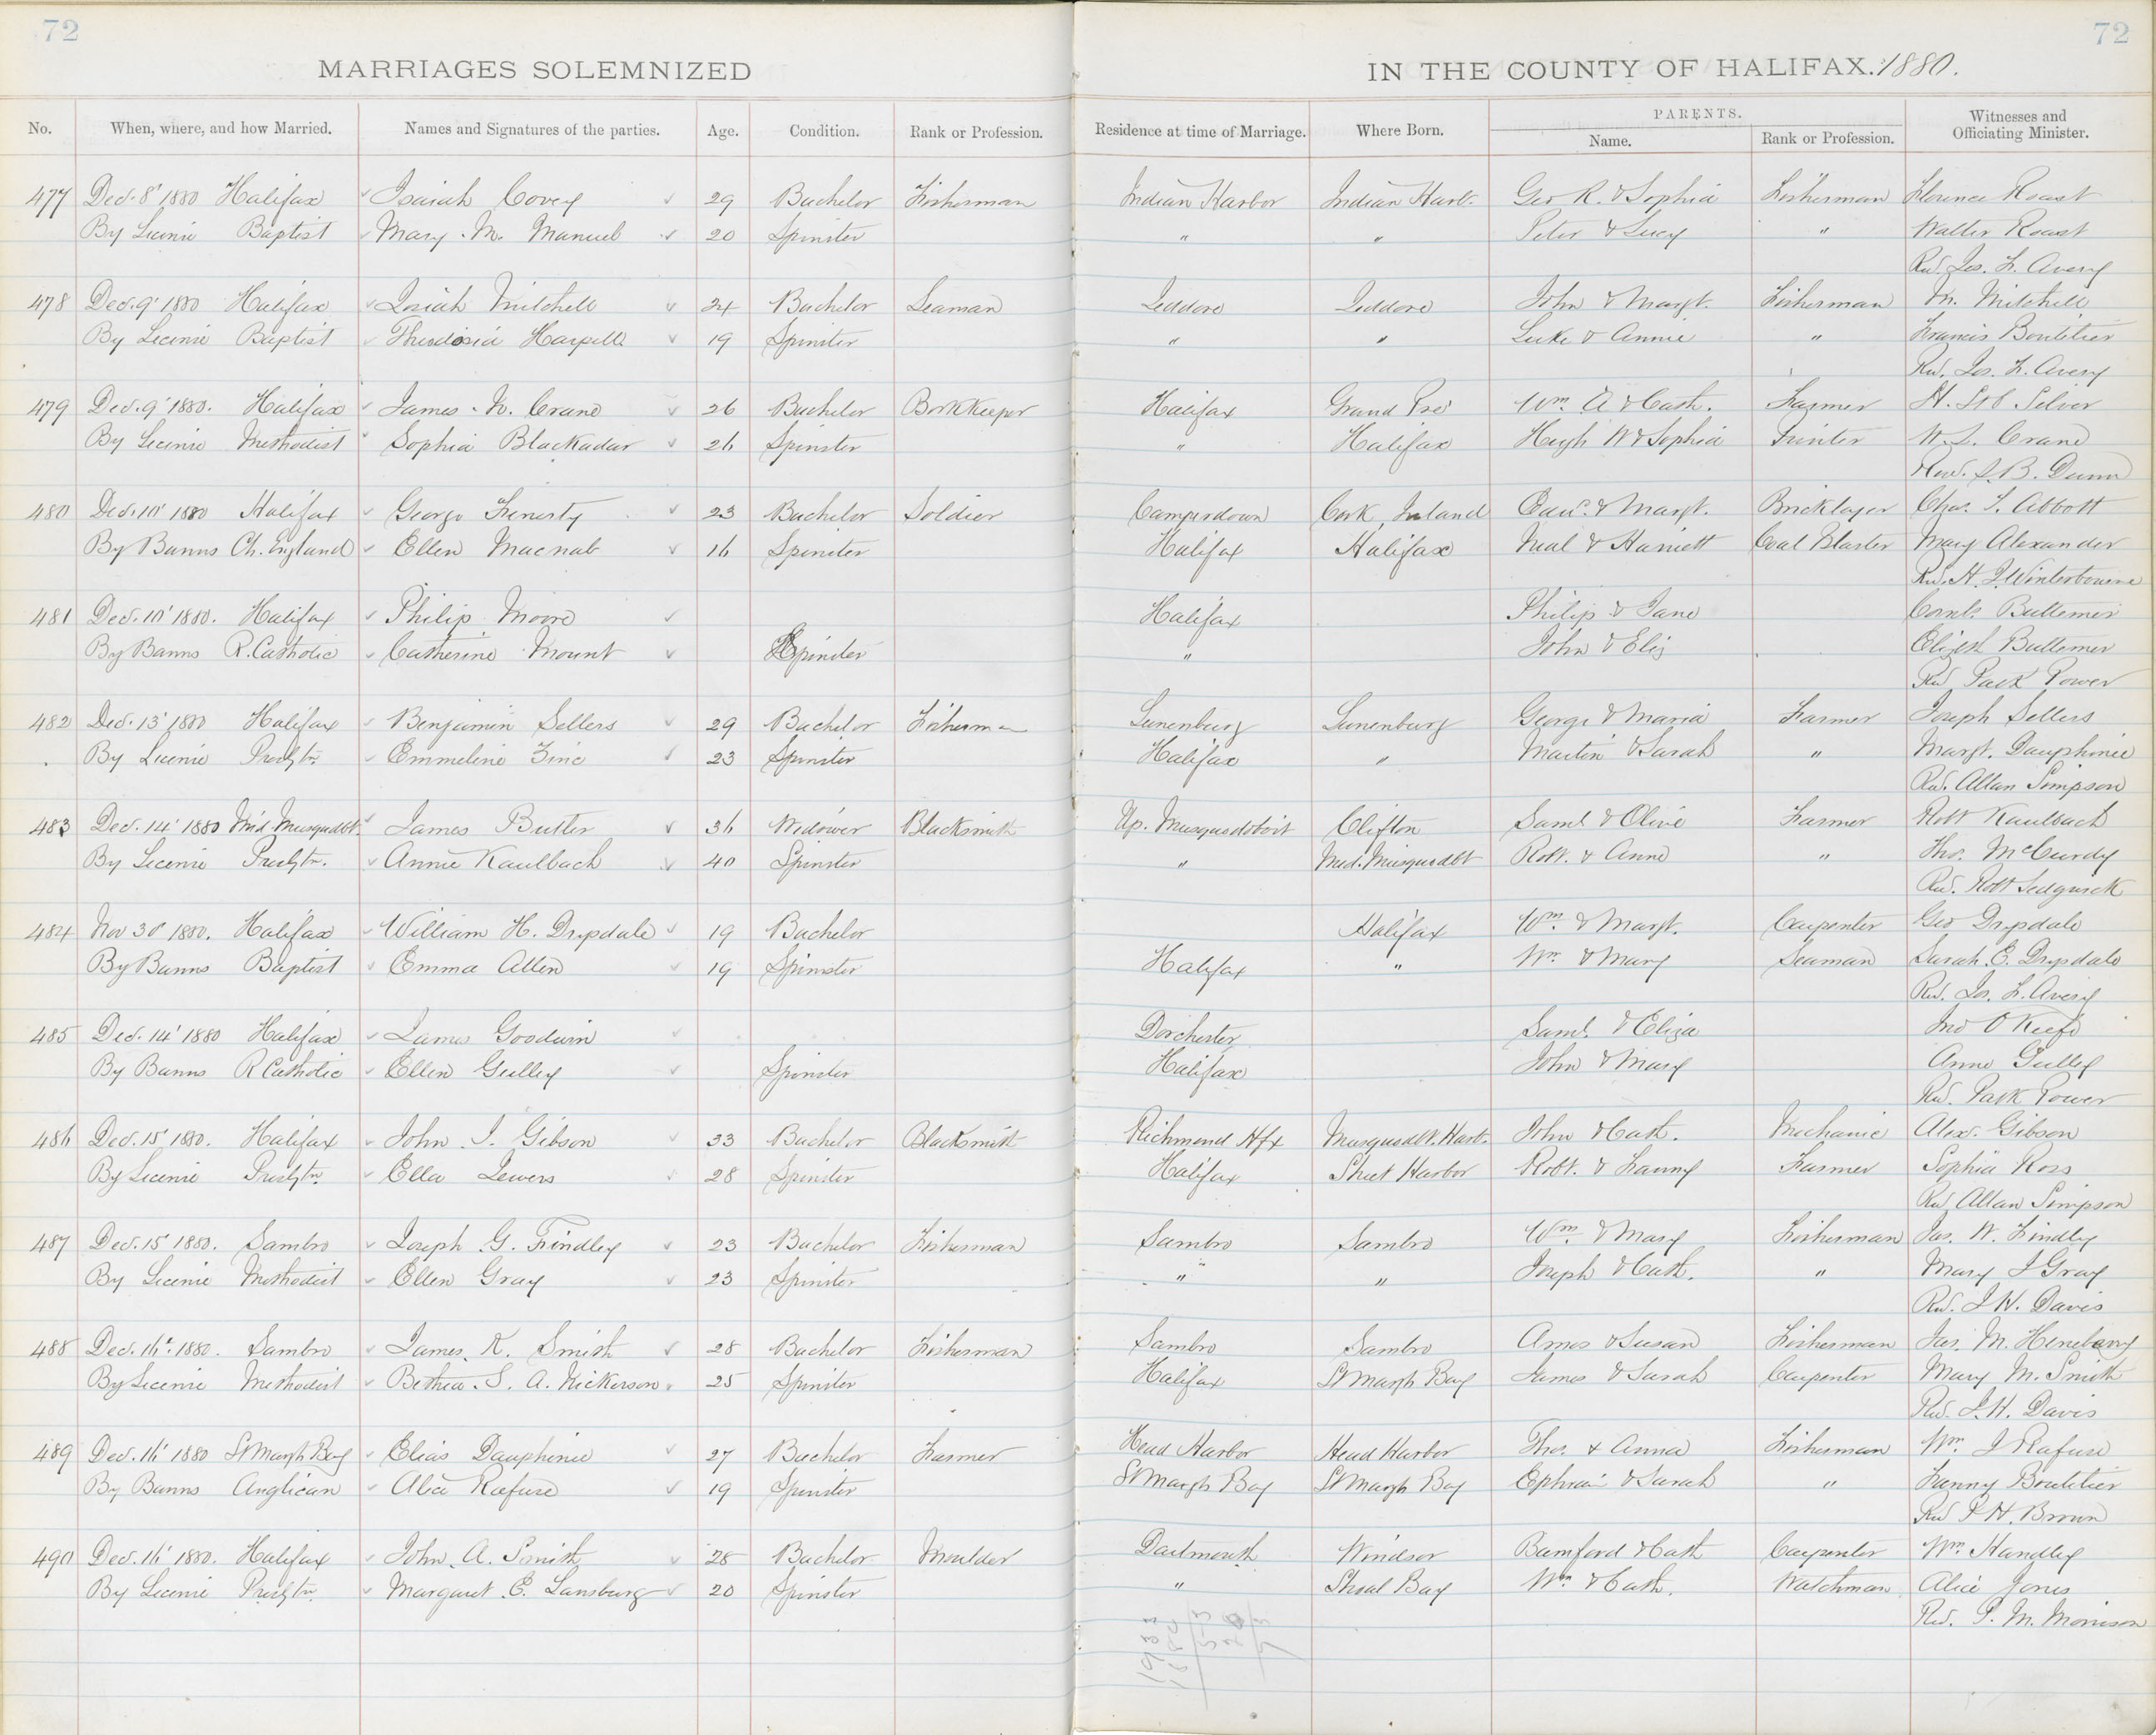 72
72
MARRIAGES SOLEMNIZED IN THE COUNTY OF HALIFAX. 1880.
No. When, where, and how Married. Names and Signatures of the parties. Age. Condition. Rank or Profession. Residence at time of Marriage. Where Born. PARENTS. Name. Rank or Profession. Witnesses and Officiating Minister.
477 Dec. 8' 1880 Halifax Isaiah Covey 29 Bachelor Fisherman Indian Harbor Indian Harb. Geo R. & Sophia Fisherman Florence Roast
By License Baptist Mary M. Manuel 20 Spinster " " Peter & Lucy " Walter Roast
Rev. Jos. F. Avery
478 Dec. 9' 1880 Halifax Isiah Mitchell 24 Bachelor Seaman Jeddore Jeddore John & Margt. Fisherman Mitchell
By License Baptist Theodosia Harpell 19 Spinster " " Luke & Annie " Francis Boutilier
Rev. Jos. F. Avery
479 Dec. 9' 1880. Halifax James N. Crane 26 Bachelor Bookkeeper Halifax Grand Pré Wm. A & Cath. Farmer H. St C Silver
By License Methodist Sophia Blackadar 26 Spinster " Halifax Hugh W & Sophia Printer Crane
Rev. S. B. Dunn
480 Dec. 10' 1880 Halifax George Finerty 23 Bachelor Soldier Camperdown Cork, Ireland Edw. & Margt. Bricklayer Chas. S. Abbott
By Banns Ch. England Ellen Macnab 16 Spinster Halifax Halifax Neal & Harriett Coal Blaster Mary Alexander
Rev. H. J. Winterbourne
481 Dec. 10' 1880. Halifax Philip Moore Halifax Philip & Jane Corns. Buttemer
By Banns R. Catholic Catherine Mount Spinster " John & Eliz Elizth Buttemer
Rev Patk Power
482 Dec. 13' 1880 Halifax Benjamin Sellers 29 Bachelor Fisherman Lunenburg Lunenburg George & Maria Farmer Joseph Sellers
By License Presbtn Emmeline Zinc 23 Spinster Halifax " Martin & Sarah " Margt. Dauphinie
Rev. Allan Simpson
483 Dec. 14' 1880 Mid Musquodbt. James Butler 36 Widower Blacksmith Up. Musquodoboit Clifton Saml & Olive Farmer Robt Kaulbach
By License Presbtn. Annie Kaulbach 40 Spinster " Mid. Musquodbt Robt. & Anne " Thos. McCurdy
Rev. Robt Sedgwick
484 Nov 30' 1880. Halifax William H. Drysdale 19 Bachelor Halifax Wm. & Margt. Carpenter Geo Drysdale
By Banns Baptist Emma Allen 19 Spinster Halifax " Wm & Mary Seaman Sarah E. Drysdale
Rev. Jos. F. Avery
485 Dec. 14' 1880 Halifax James Goodwin Dorchester Saml. & Eliza Jno O'Keefe
By Banns R Catholic Ellen Gulley Spinster Halifax John & Mary Anne Gulley
Rev. Patk Power
486 Dec. 15' 1880. Halifax John J. Gibson 33 Bachelor Blacksmith Richmond Hfx Musquodbt. Harb. John & Cath. Mechanic Alex. Gibson
By License Presbtn. Ella Lewers 28 Spinster Halifax Sheet Harbor Robt. & Fanny Farmer Sophia Ross
Rev Allan Simpson
487 Dec. 15' 1880. Sambro Joseph G. Findley 23 Bachelor Fisherman Sambro Sambro Wm. & Mary Fisherman Jas. W. Findley
By License Methodist Ellen Gray 23 Spinster " " Joseph & Cath. " Mary J Gray
Rev. J. H. Davis
488 Dec. 16' 1880. Sambro James K. Smith 28 Bachelor Fisherman Sambro Sambro Amos & Susan Fisherman Jas. M. Heneberry
By License Methodist Bethia S. A. Nickerson 25 Spinster Halifax St Margts Bay James & Sarah Carpenter Mary M. Smith
Rev. J. H. Davis
489 Dec. 16' 1880 St Margts Bay Elias Dauphinie 27 Bachelor Farmer Head Harbor Head Harbor Thos. & Anna Fisherman Wm. J Rafuse
By Banns Anglican Alice Rafuse 19 Spinster St Margts Bay St Margts Bay Ephraim & Sarah " Fanny Boutilier
Rev P H. Brown
490 Dec. 16' 1880. Halifax John A. Smith 28 Bachelor Moulder Dartmouth Windsor Bamford & Cath Carpenter Wm Handley
By License Presbtn Margaret E. Lansburg 20 Spinster " Shoal Bay Wm & Cath. Watchman Alice Jones
Rev. P. M. Morrison